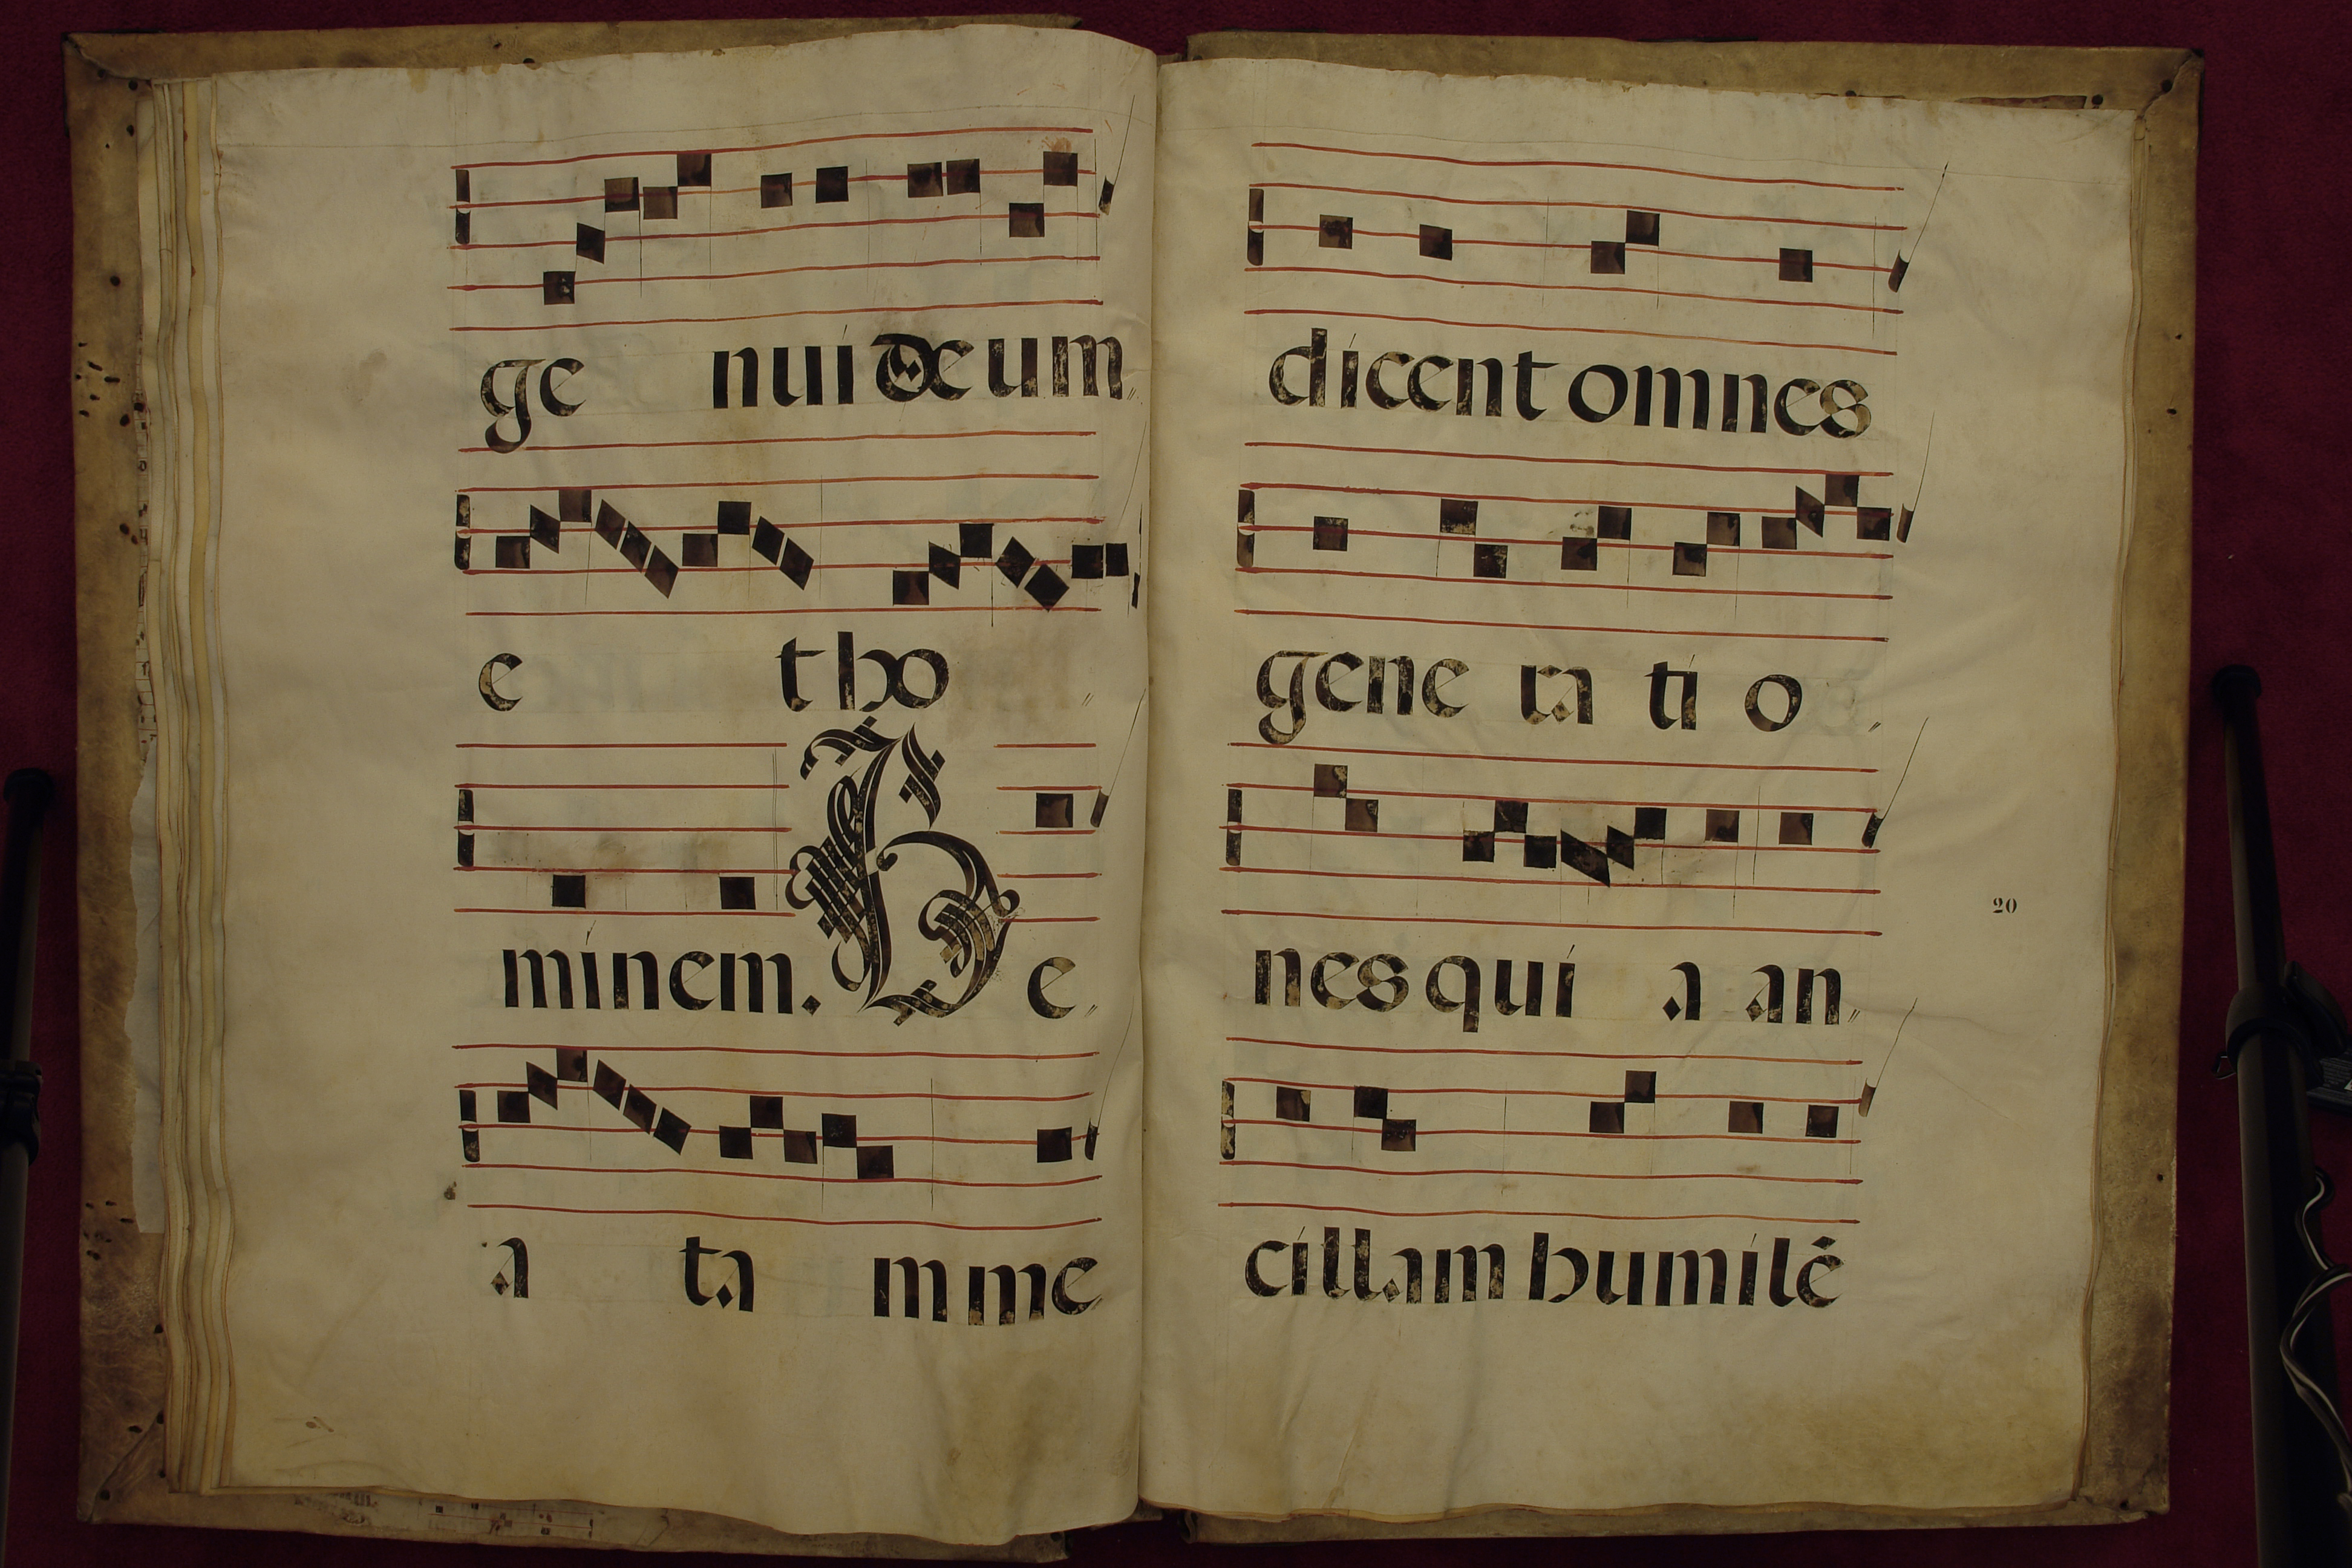 ge nui deum
e t ho
minem. B e
a ta m me
dicent omnes
gene ra ti o
nes qui a an
20
cillam humilé